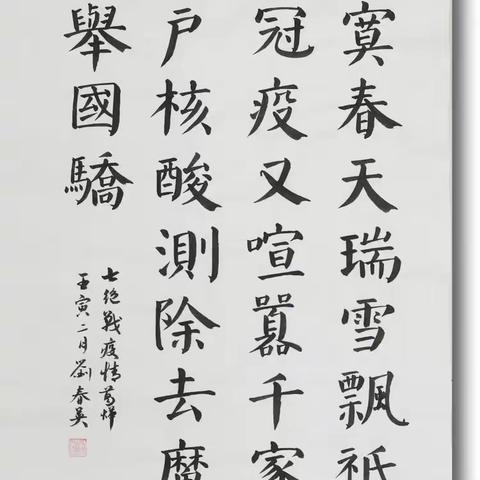 寞春天瑞雪飄祇
冠疫又喧囂千家
户核酸測除去
舉國驕
七絕戰疫情
壬寅二月劉春英